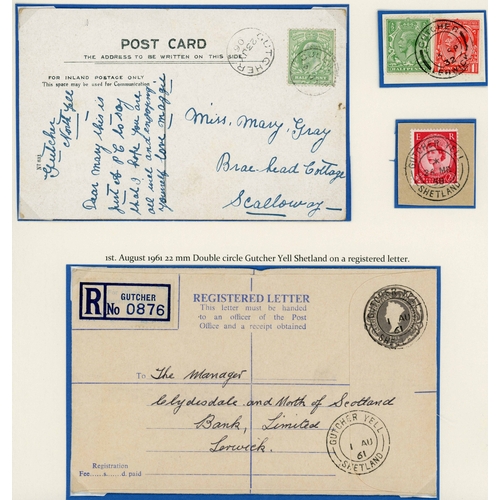 POST CARD
THE ADDRESS TO BE WRITTEN ON THIS SIDE
FOR INLAND POSTAGE ONLY
This space may be used for Communication
Gutcher
North Yell
Dear Mary this is
just a P.C to say
I hope you are
all well and enjoying
yourself love Maggie
Miss. Mary Gray
Brae head Cottage
Scalloway
GUTCHER
GUTCHER
32
GUTCHER YELL
SHETLAND
E R
1st. August 1961 22 mm Double circle Gutcher Yell Shetland on a registered letter.
R
GUTCHER
No 0876
REGISTERED LETTER
This letter must be handed
to an officer of the Post
Office and a receipt obtained
GUTCHER YELL
61
To The Manager
Clydesdale and North of Scotland
Bank, Limited
Lerwick.
GUTCHER YELL
1 AU
61
SHETLAND
Registration
Fee.....s.....d. paid